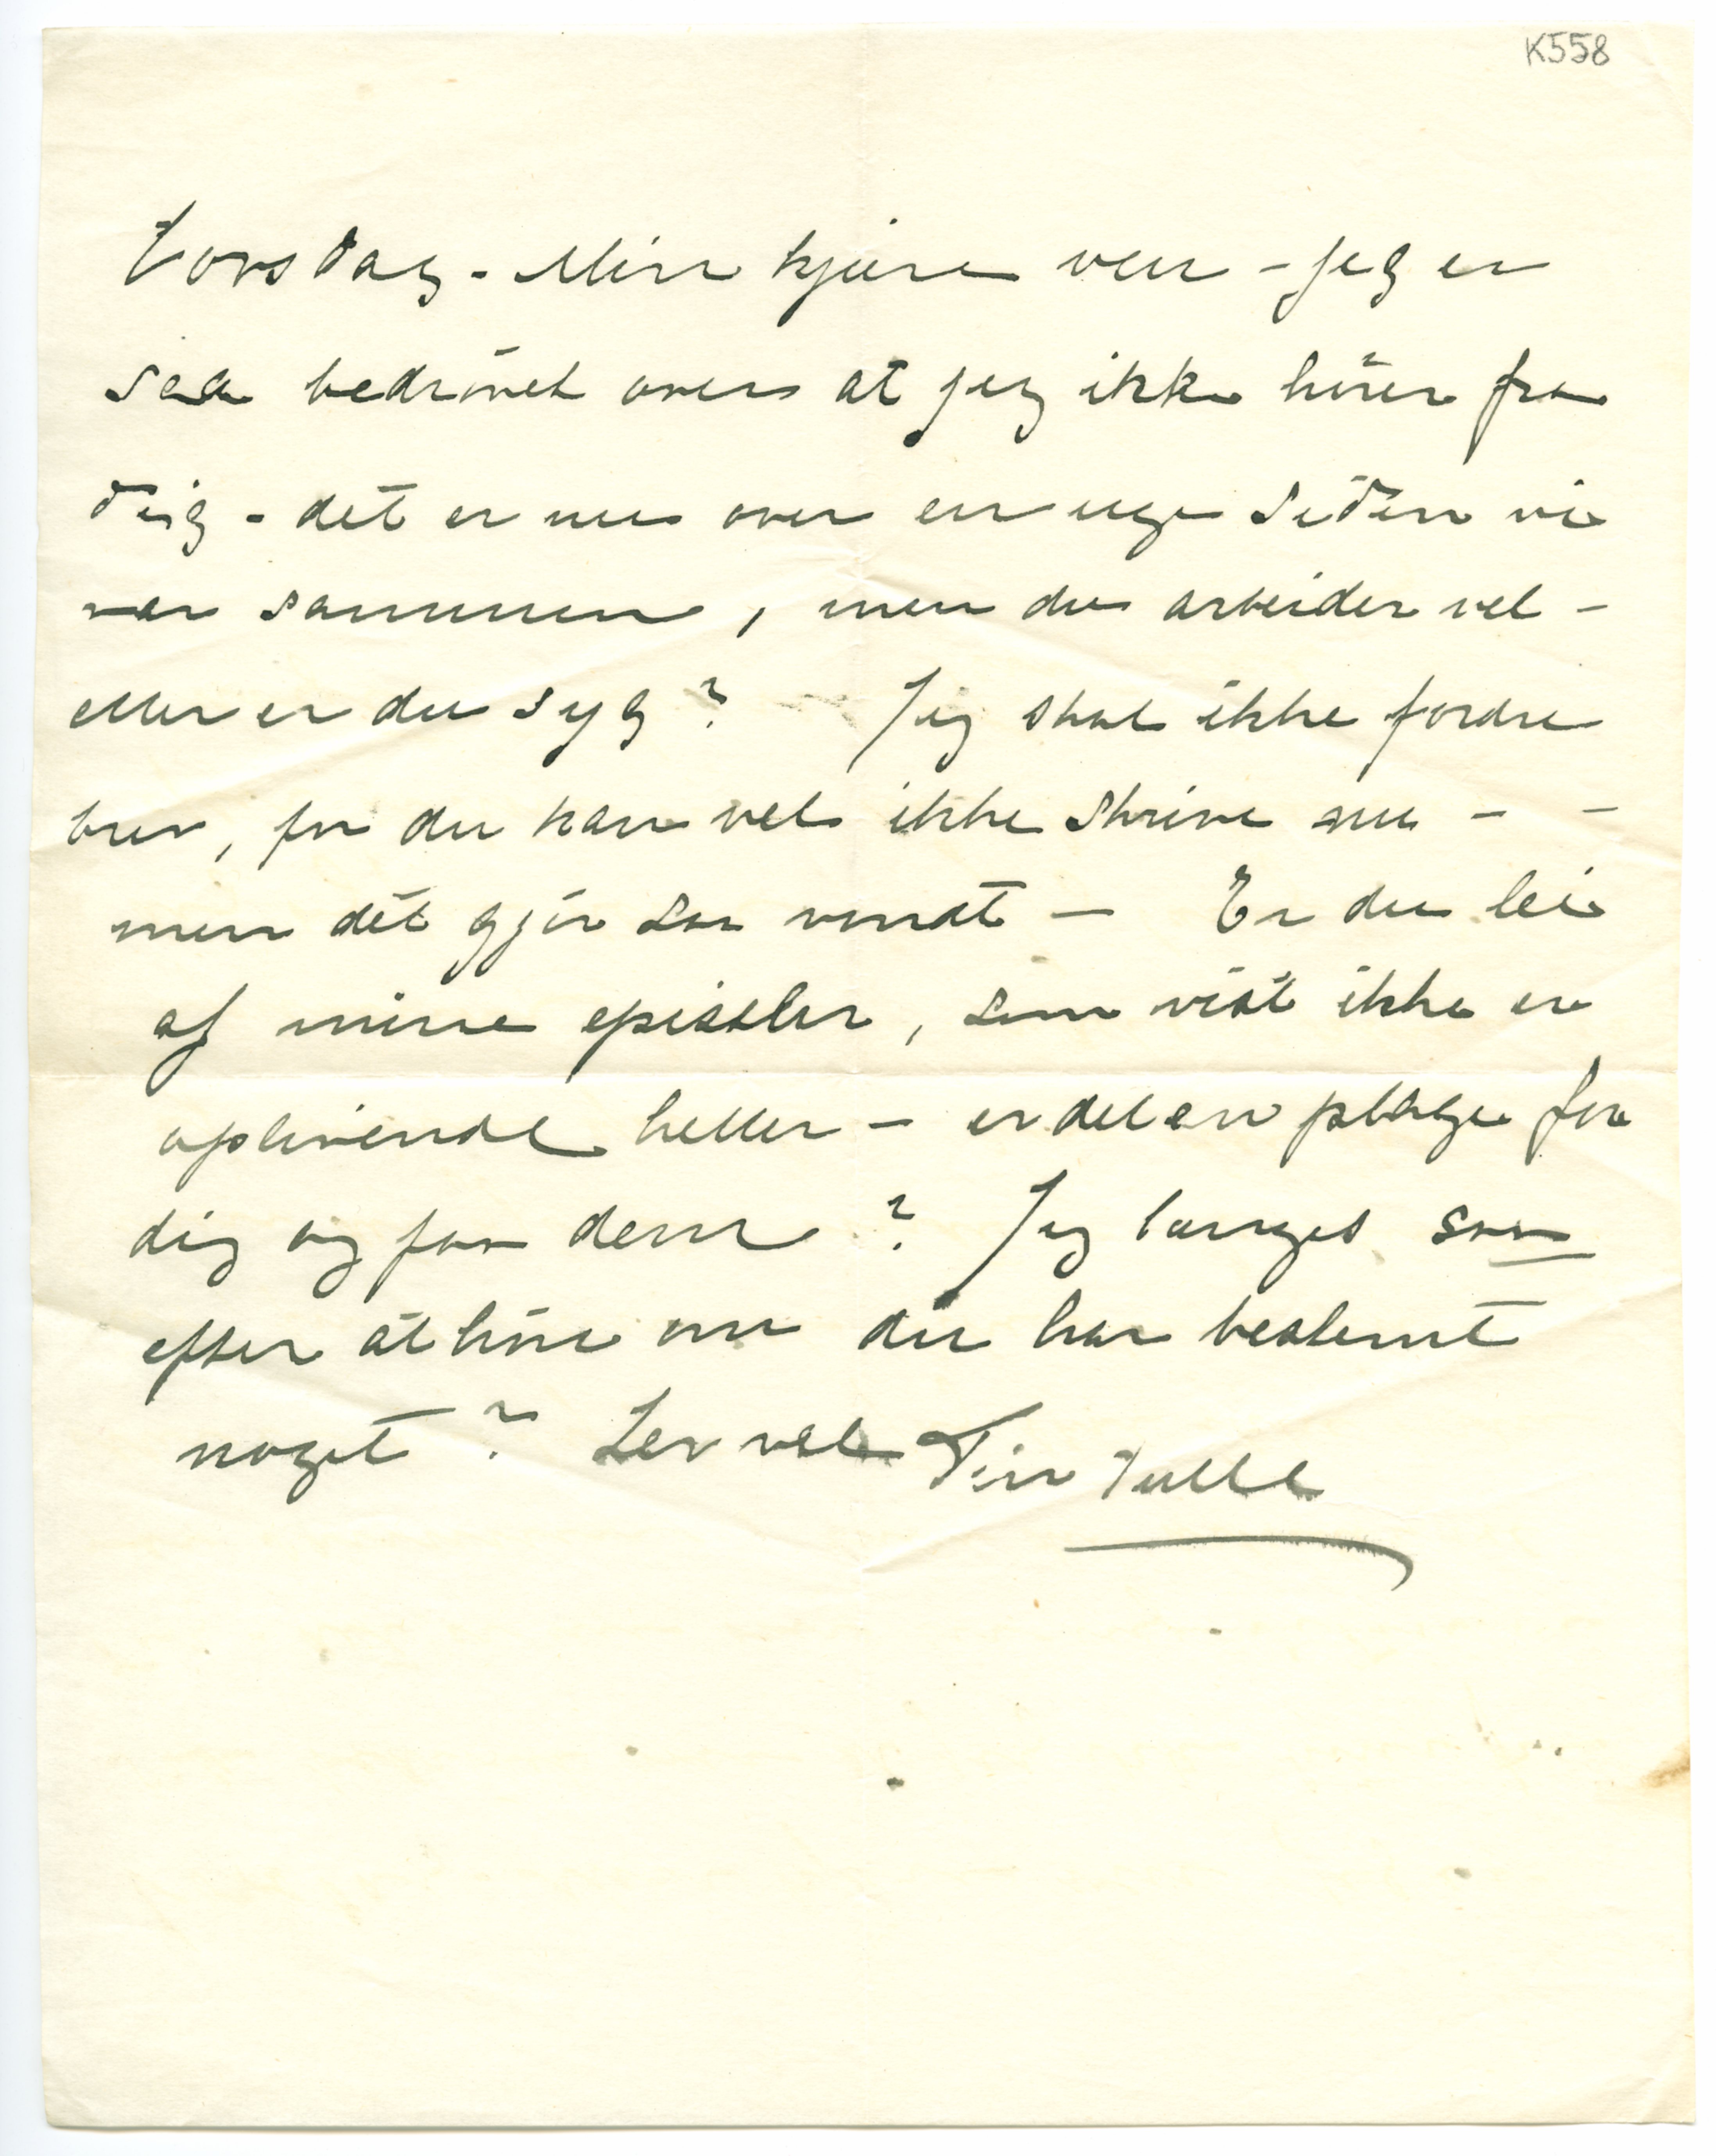 K558
Torsdag - Min kjære ven - jeg er
saa bedrøvet over at jeg ikke hører fra
dig - det er nu over en uge siden vi
var sammen, men du arbeider vel -
eller er du syg? Jeg skal ikke fordre
brev, for du kan vel ikke skrive nu - -
men det gjør saa vondt - Er du lei
af mine epistler, som vist ikke er
oplivende heller - er det en plage for
dig og faa dem? Jeg længes saa
efter at høre om du har bestemt
noget? Lev vel Din Tulle